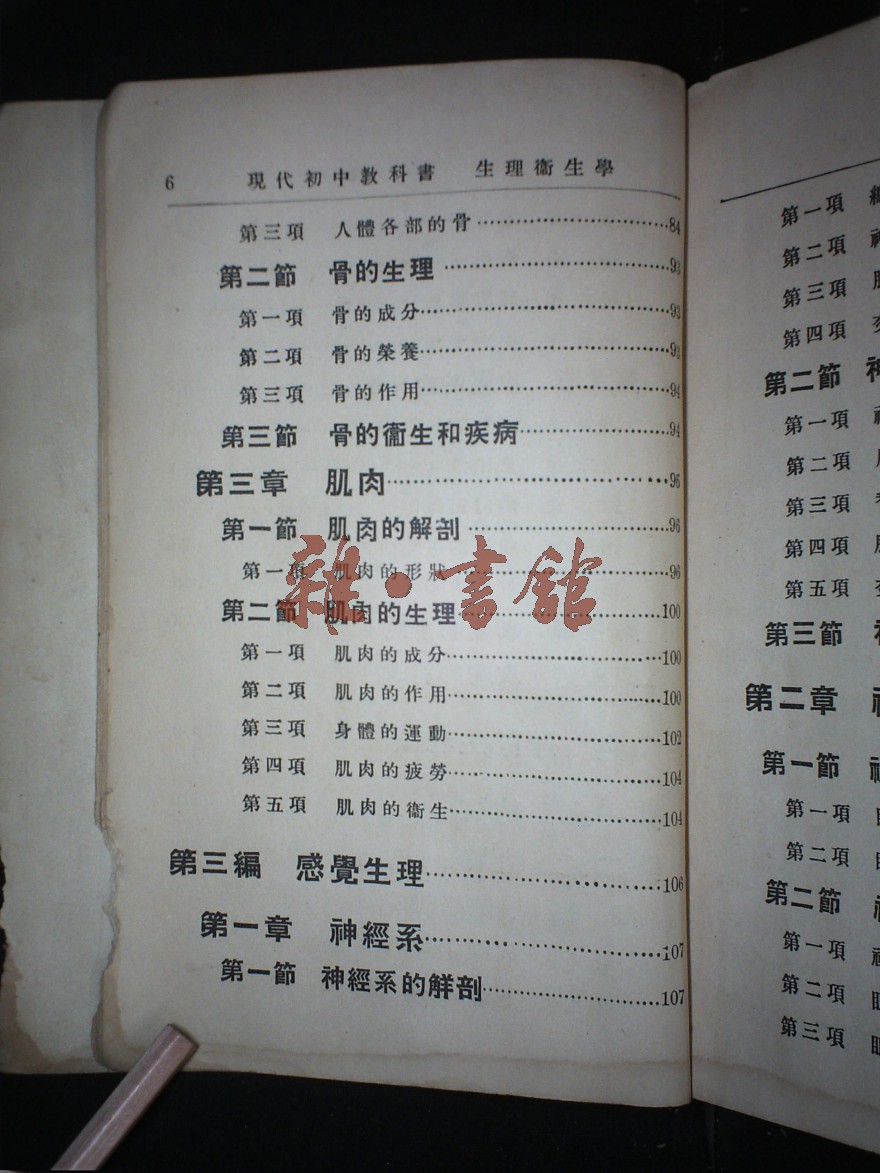 6 現代初中教科書 生理衞生學
第三項 人體各部的骨……84
第二節 骨的生理……93
第一項 骨的成分……93
第二項 骨的榮養……93
第三項 骨的作用……94
第三節 骨的衞生和疾病……94
第三章 肌肉……96
第一節 肌肉的解剖……96
第一項 肌肉的形狀……96
第二節 肌肉的生理……100
第一項 肌肉的成分……100
第二項 肌肉的作用……100
第三項 身體的運動……102
第四項 肌肉的疲勞……104
第五項 肌肉的衞生……104
第三編 感覺生理……106
第一章 神經系……107
第一節 神經系的解剖……107
雜·書館
第一項
第二項
第三項
第四項
第二節 神
第一項
第二項
第三項
第四項
第五項
第三節
第二章
第一節
第一項
第二項
第二節
第一項
第二項 眼
第三項 眼